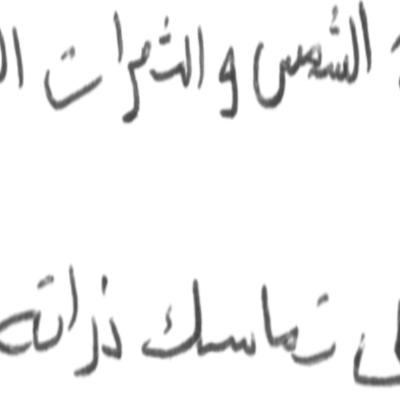 الشمس والثمرات
تماسك ذراته